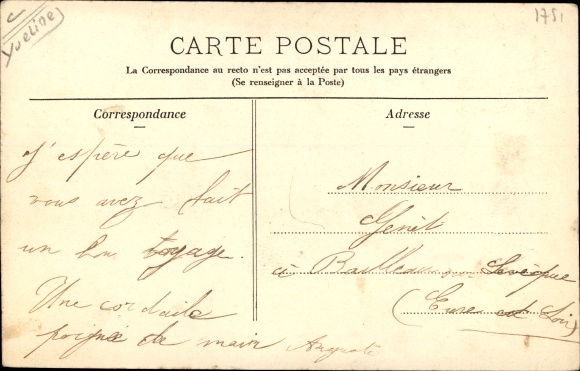 Yvelines
1751
CARTE POSTALE
La Correspondance au recto n'est pas acceptée par tous les pays étrangers
(Se renseigner à la Poste)
Correspondance
Adresse
J'espère que
vous avez fait
un bon voyage.
Une cordiale
poignée de main
Monsieur
Genet
à Bailleau Levéque
(Eure et Loir)